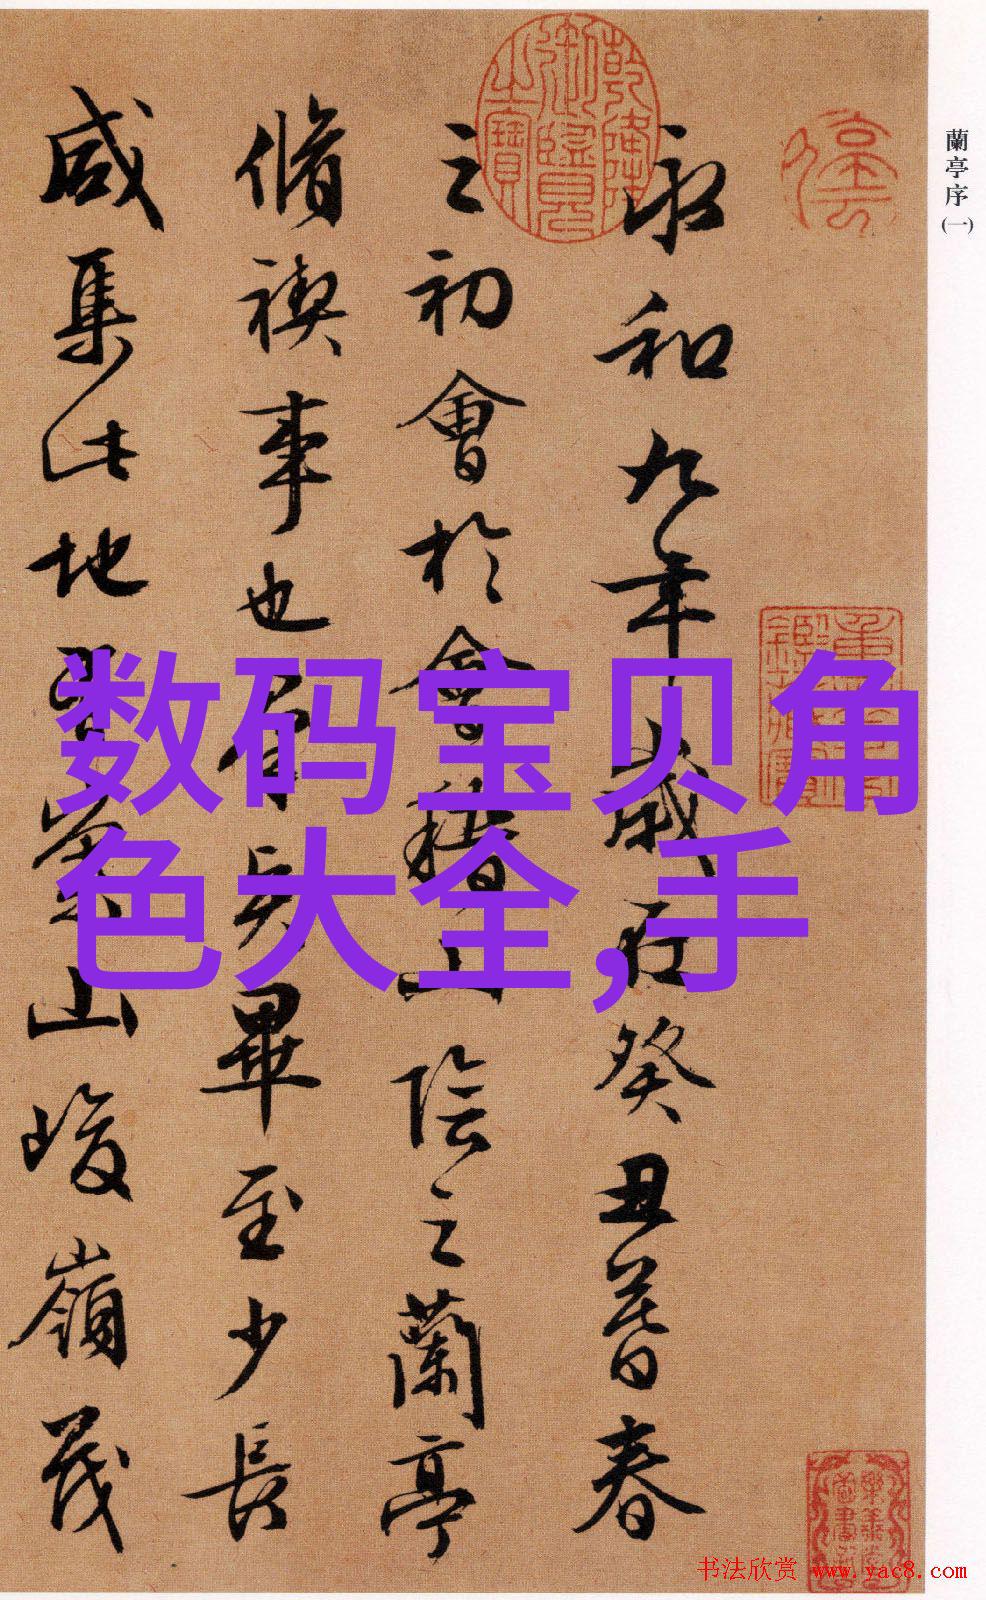 蘭亭序(一)
永和九年歲在癸丑暮春
之初會於會稽山陰之蘭亭
脩禊事也
畢至少長
咸集此地
山峻嶺茂
數码宝贝角
色大全,手
乾隆御覽之寶
书法欣赏 www.yac8.com